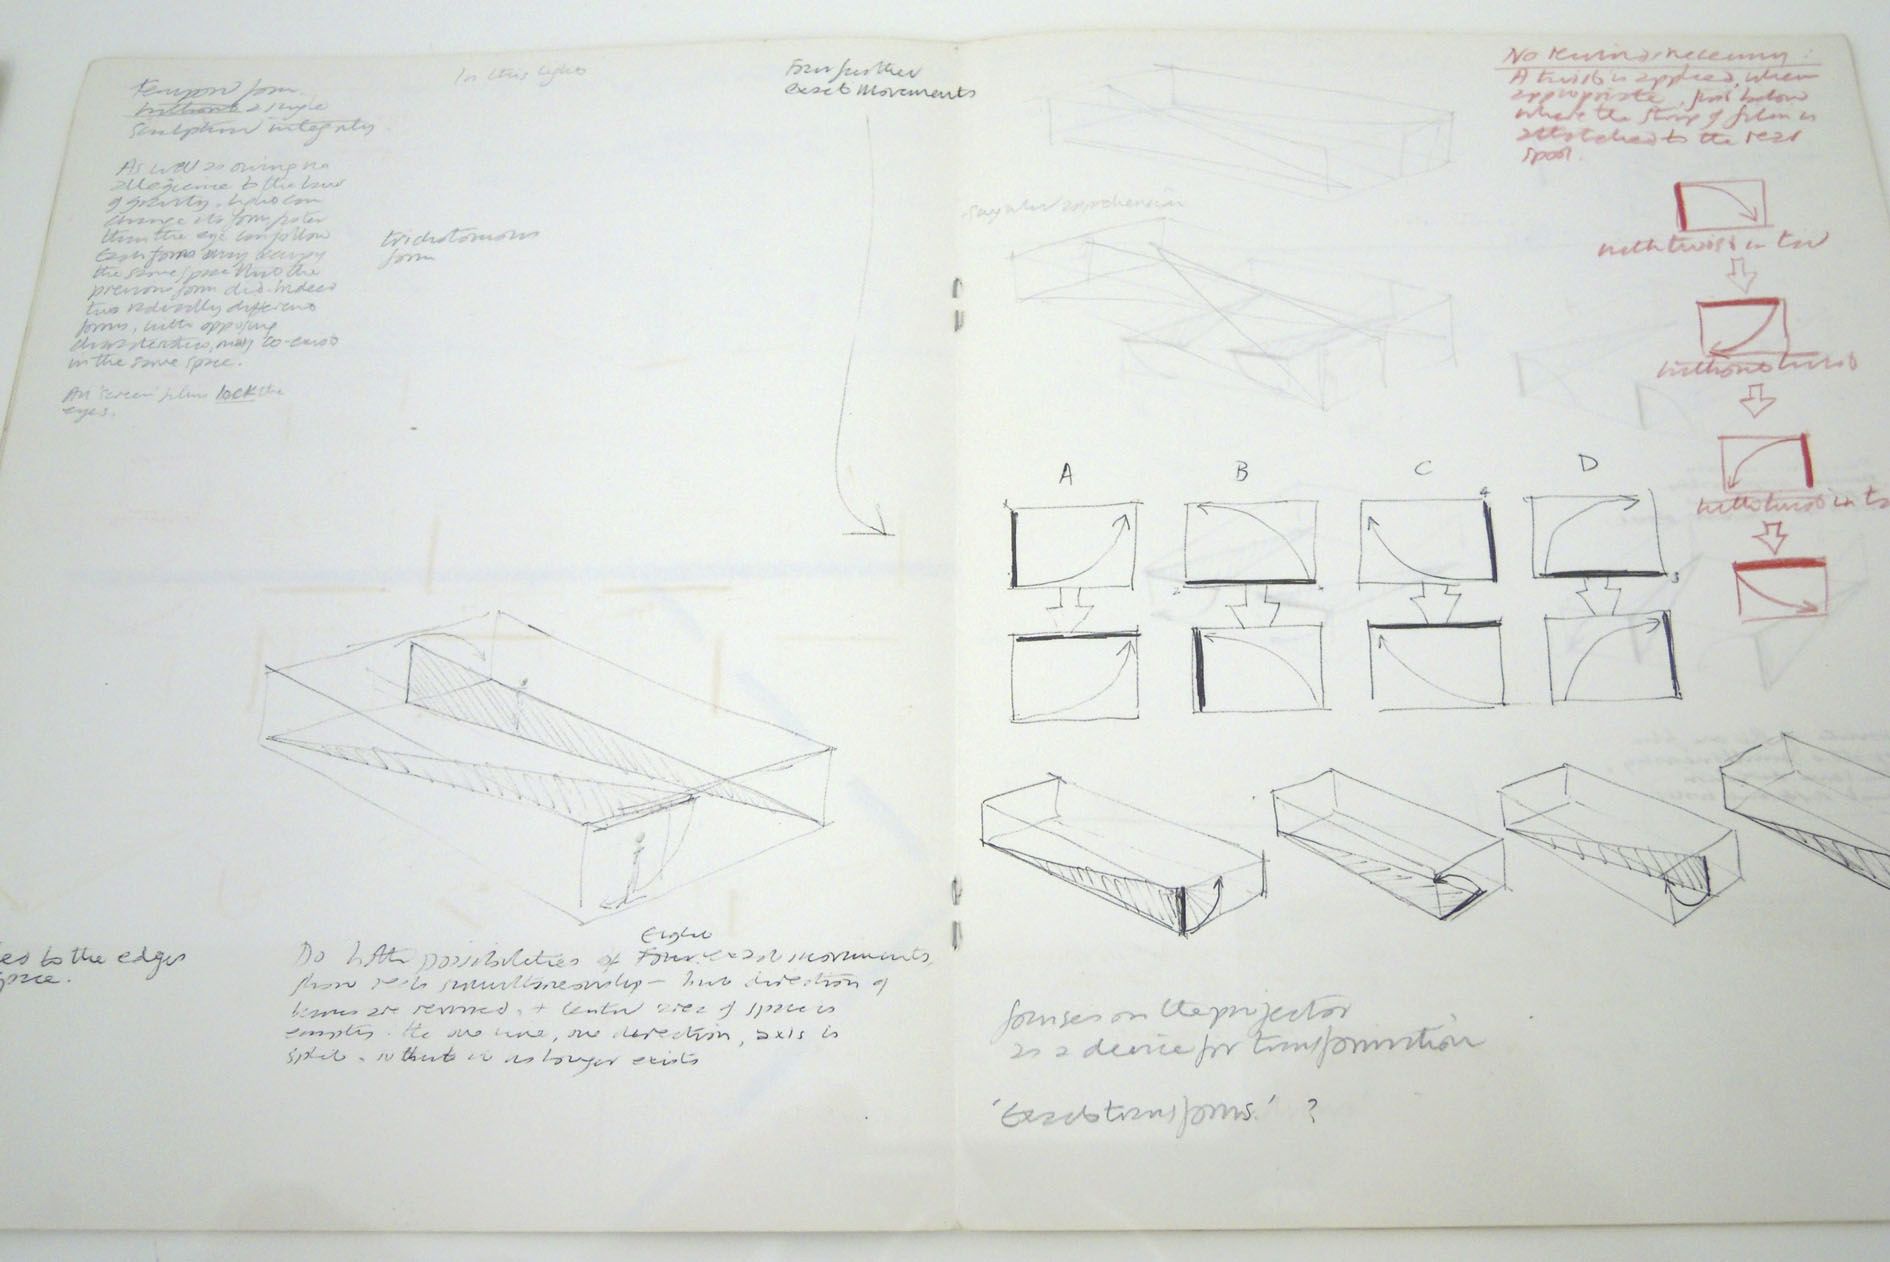 form.
a single
sculpture integrity
As well as owing no
allegiance to the laws
of gravity, light can
change its form faster
than the eye can follow
Each form may occupy
the same space that the
previous form did. Indeed
two radically different
forms, with opposing
characteristics, may co-exist
in the same space.
All 'screen' films lock the
eyes.
In this light
trichotomous
form
Four further
exact movements
ed to the edges
Eight
Do both possibilities of Four exact movements
simultaneously – but direction of
beams are reversed, + center area of space is
empty. the one direction, axis is
split - so that it no longer exists
singular apprehension
No rewind necessary:
A twist is applied, when
appropriate, just below
where the strip of film is
attached to the rear
spool.
with twist in
without twist
with twist in
A B C D
4
2
3
focuses on the projector
as a device for transformation
'Exact transforms.' ?